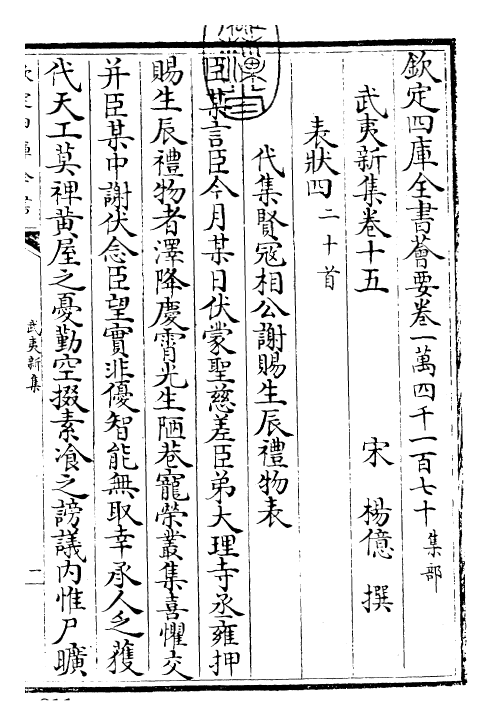 欽定四庫全書薈要卷一萬四千一百七十集部
武夷新集卷十五
宋 楊億 撰
表狀四二十首
代集賢冦相公謝賜生辰禮物表
臣某言臣今月某日伏蒙聖慈差臣弟大理寺丞雍押
賜生辰禮物者澤降慶霄光生陋巷寵榮叢集喜懼交
并臣某中謝伏念臣望實非優智能無取幸承人乏獲
代天工莫禆黄屋之憂勤空掇素飡之謗議内惟尸曠
武夷新集